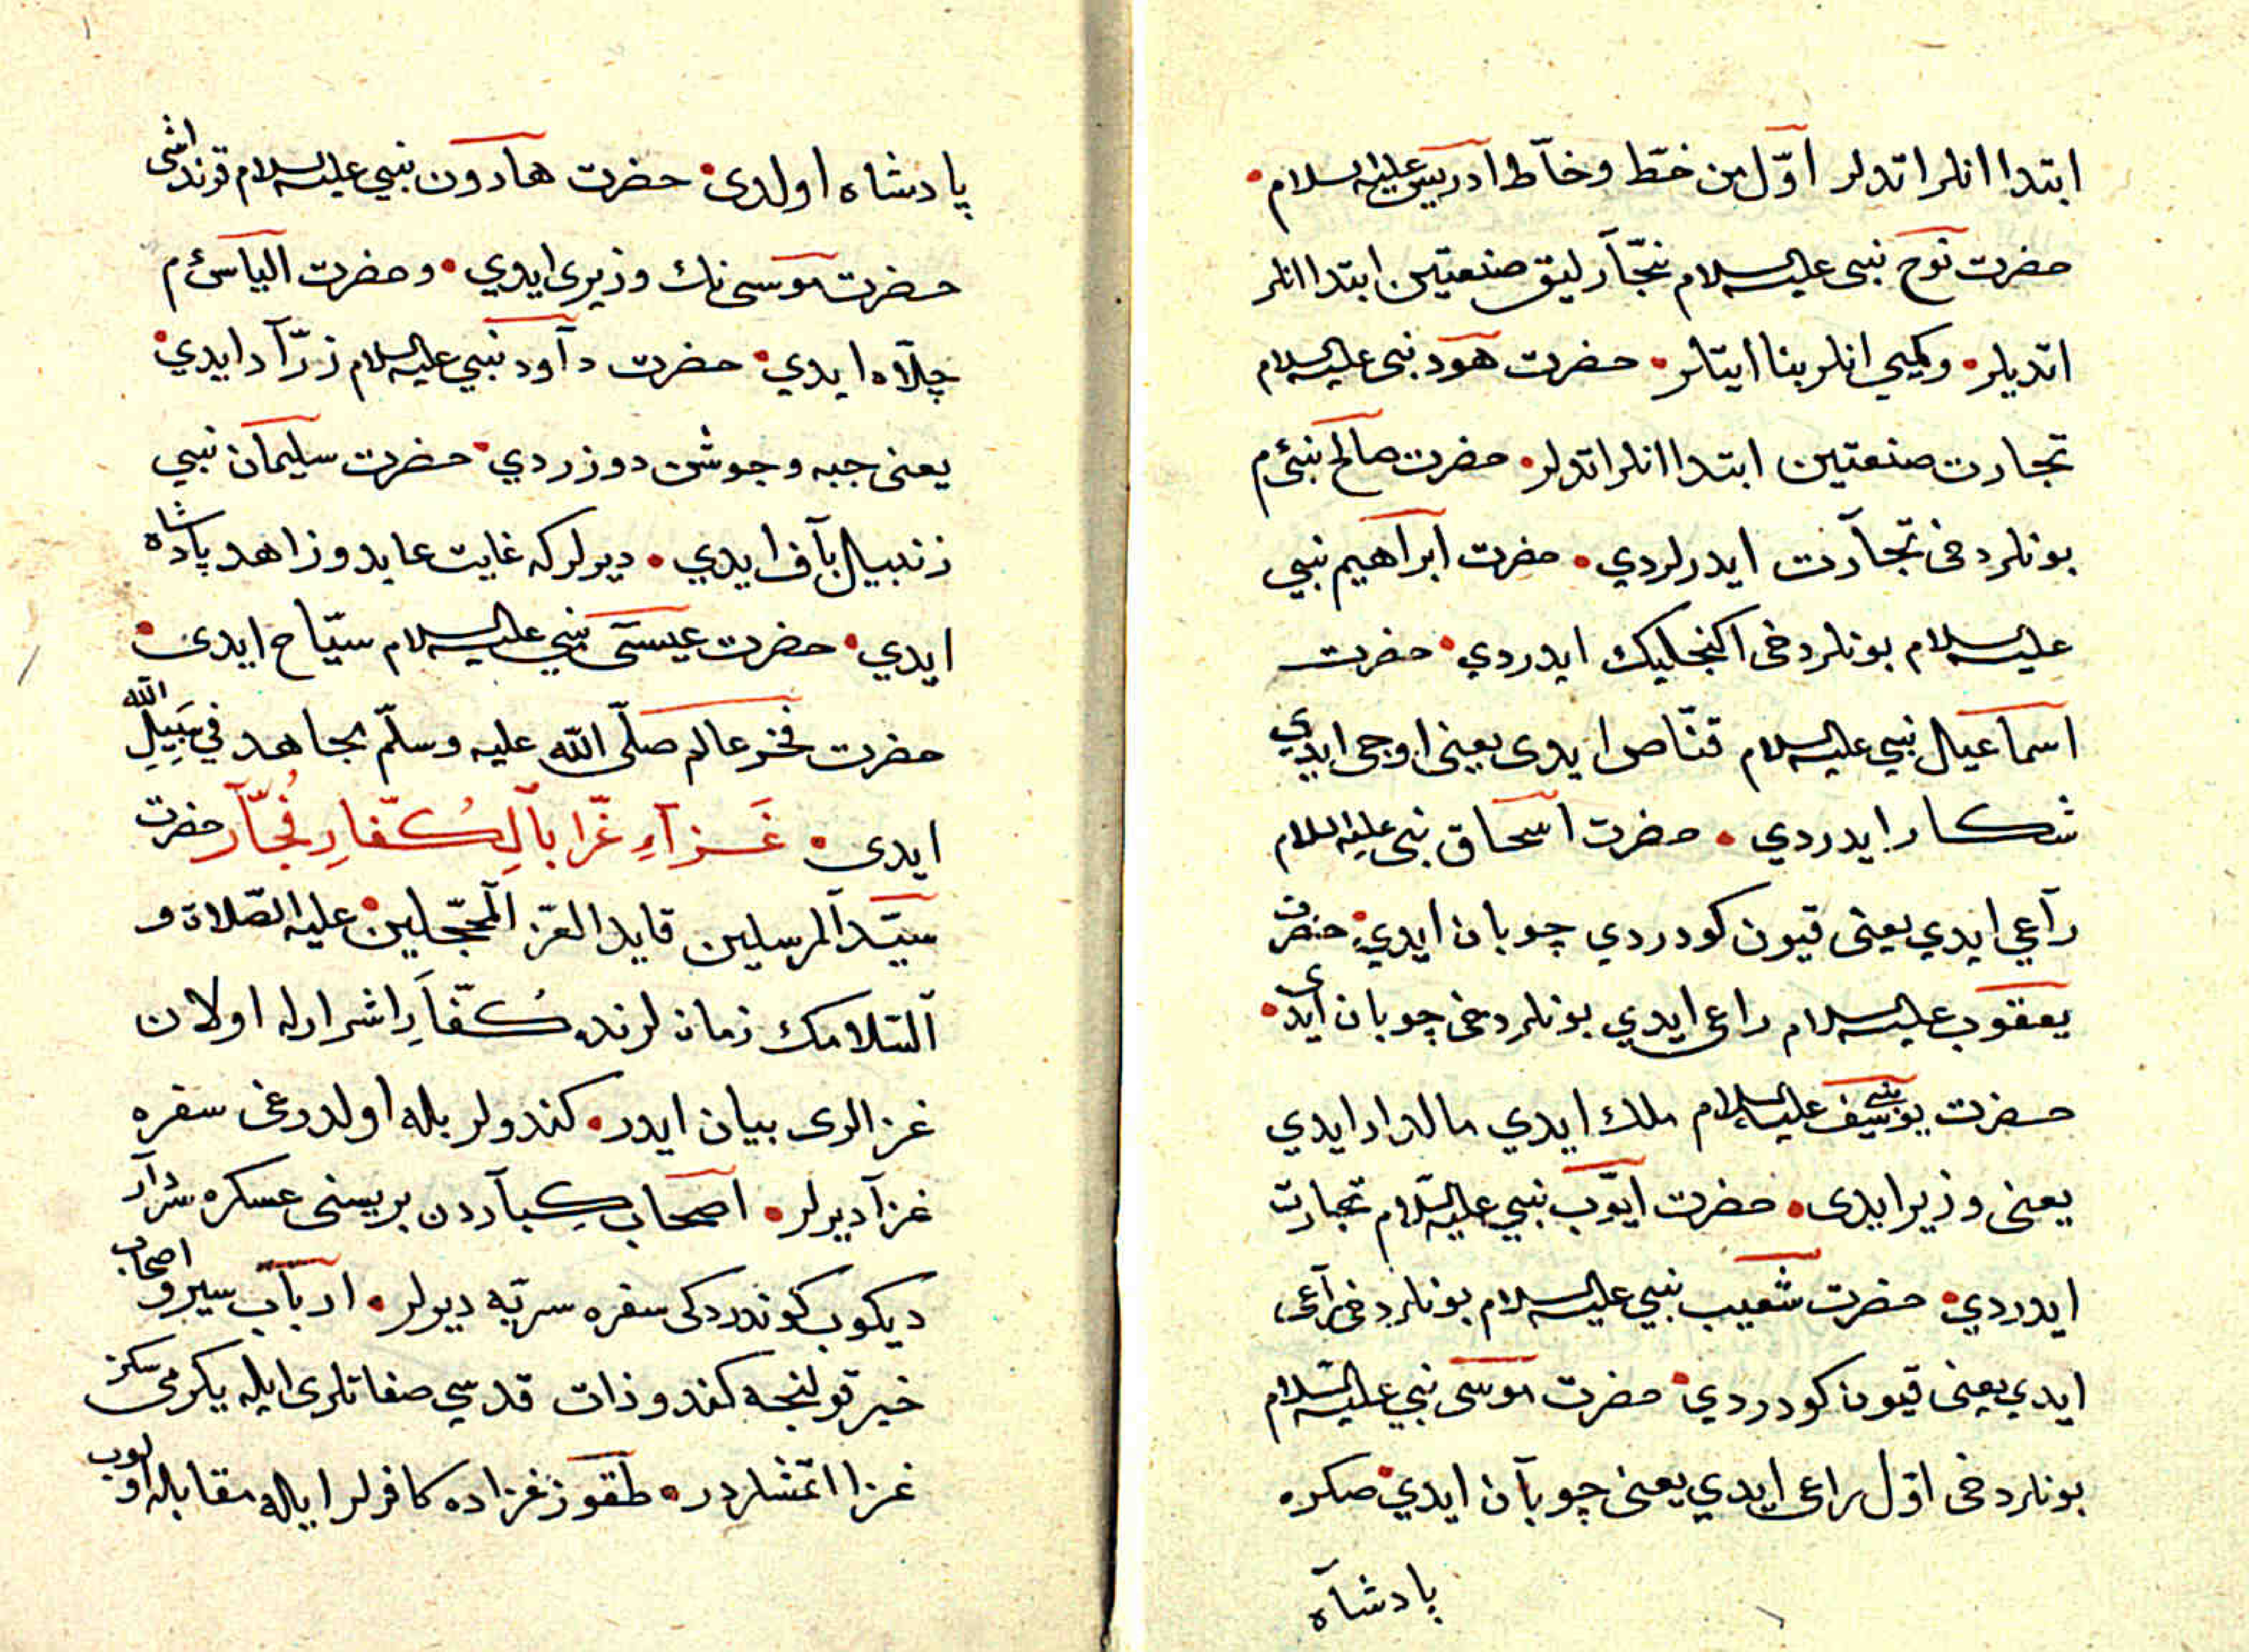 ابتدا انلر اتدلر اوّل من خطّ وخاّط ادريس عليه السلام
حضرت نوح نبى عليه السلام نجّارليق صنعتين ابتدا انلر
اتديلر وكمى انلر بنا ايتلر حضرت هود نبى عليه السلام
تجارت صنعتين ابتدا انلر اتدلر حضرت صالح نبى ءم
بونلر دخى تجارت ايدرلردي حضرت ابراهيم نبي
عليه السلام بونلر دخى اكنجليك ايدردي حضرت
اسماعيل نبي عليه السلام قنّاص ايدى يعنى اوجى ايدي
شكار ايدردي حضرت اسحاق نبى عليه السلام
راعي ايدي يعنى قيون كودردي چوبان ايدي حضرت
يعقوب عليه السلام راعى ايدي بونلر دخى چوبان ايدى
حضرت يوسف نبى عليه السلام ملك ايدي مالدار ايدي
يعنى وزير ايدى حضرت ايّوب نبي عليه السّلام تجارت
ايدردي حضرت شعيب نبي عليه السلام بونلر دخى راعى
ايدي يعنى قيون كودردي حضرت موسى نبي عليه السّلام
بونلر دخى اوّل راعى ايدي يعنى چوبان ايدي صكره
پادشاه
پادشاه اولدى حضرت هارون نبي عليه السلام قرنداشى
حضرت موسى نك وزيرى ايدي وحضرت الياس ءم
جلاّه ايدي حضرت داود نبي عليه السلام زرّاد ايدي
يعنى جبه وجوشن دوزردي حضرت سليمان نبي
زنبيل باف ايدي ديرلركه غايت عابد وزاهد پادشاه
ايدي حضرت عيسى نبي عليه السلام سيّاح ايدى
حضرت فخر عالم صلّى اللّه عليه وسلّم مجاهد في سَبِيلِ اللّه
ايدى غَزآءِ غَرّا بالكُفّارِ فُجّار حضرت
سيّد المرسلين قايد الغرّ المحجّلين عليه الصّلاة و
السّلامك زمان لرنده كُفّارِ اشرارله اولان
غزالرى بيان ايدر كندولر بله اولدوغى سفره
غزا ديرلر اصحاب كِباردن بريسنى عسكره سردار
ديكوب كوندردكى سفره سريّه ديرلر ارباب سير و اصحاب
خير قولنجه كندو ذات قدسي صفاتلرى ايله يكرمى سكز
غزا اتمشلردر طقوز غزاده كافرلر ايله مقابله اولوب